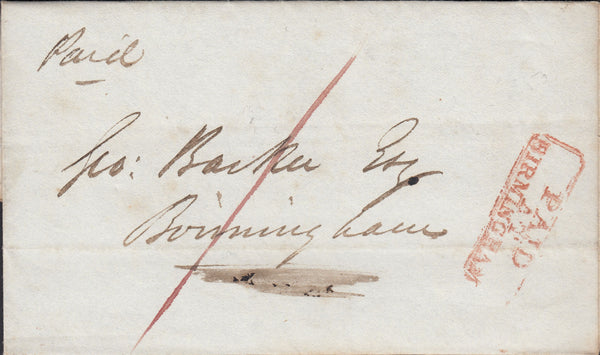 Paid
Geo: Barker Esq
Birmingham
PAID
AT
BIRMINGHAM